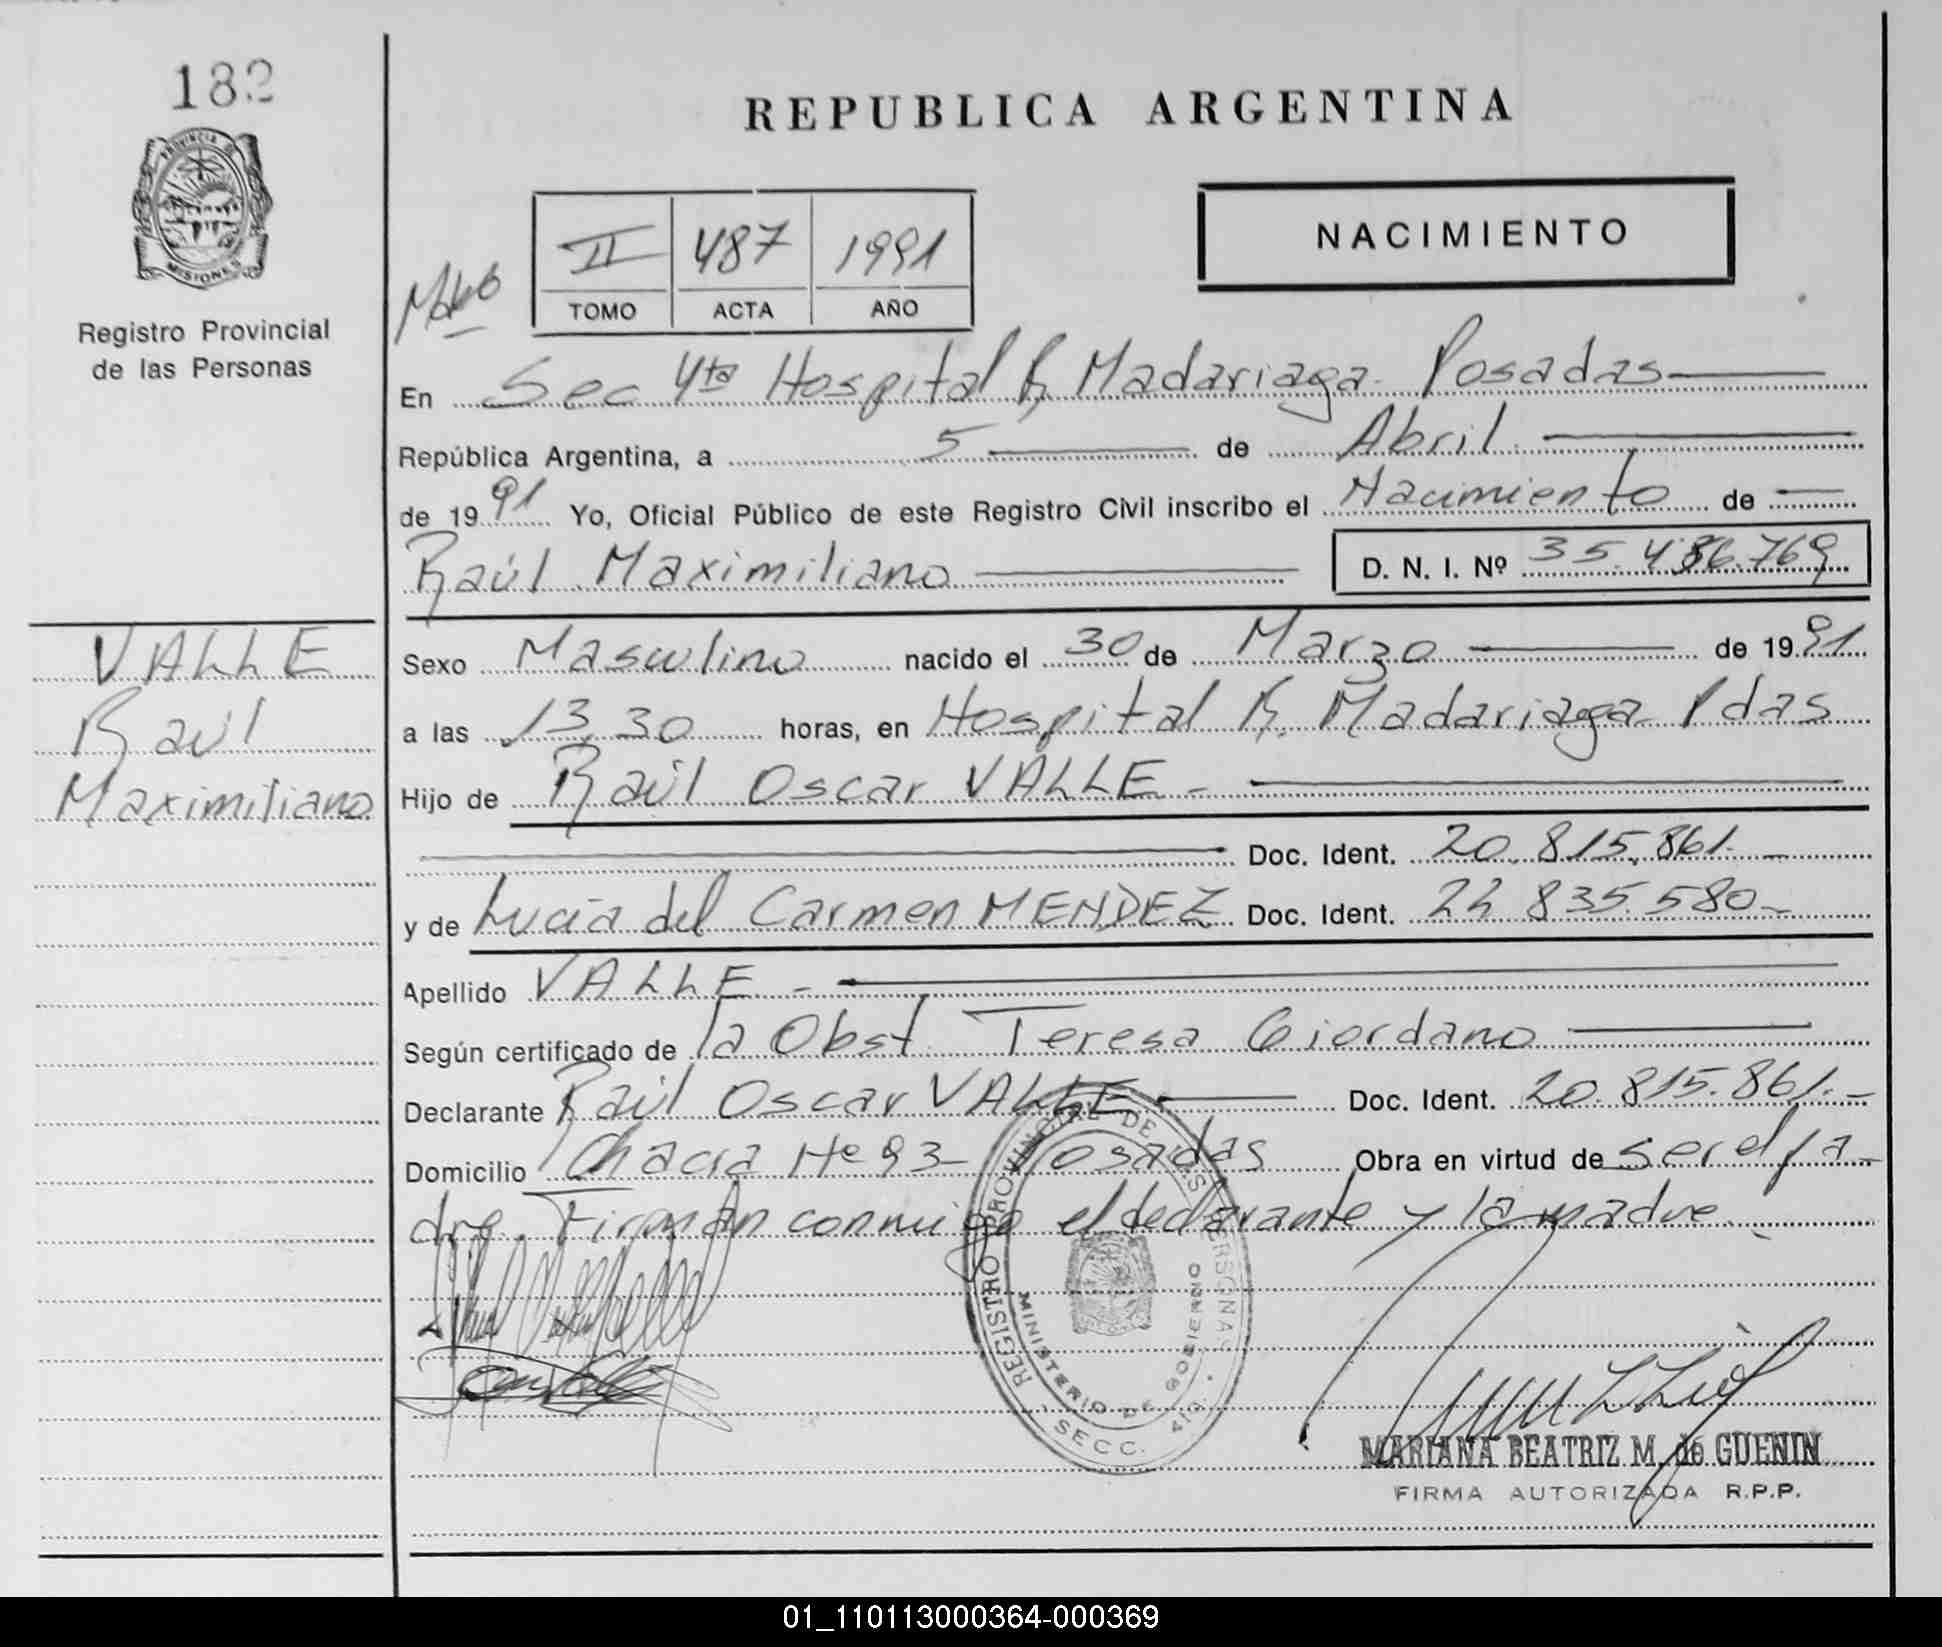 182
PROVINCIA DE
MISIONES
Registro Provincial
de las Personas
VALLE
Raúl
Maximiliano
REPUBLICA ARGENTINA
II 487 1991
TOMO ACTA AÑO
NACIMIENTO
En Sec 4ta Hospital R. Madariaga - Posadas
República Argentina, a 5 de Abril
de 1991 Yo, Oficial Público de este Registro Civil inscribo el Nacimiento de
Raúl Maximiliano D. N. I. Nº 35.486.769
Sexo Masculino nacido el 30 de Marzo de 1991
a las 13,30 horas, en Hospital R. Madariaga - Pdas
Hijo de Raúl Oscar VALLE -
Doc. Ident. 20.815.861. -
y de Lucía del Carmen MENDEZ Doc. Ident. 22 835.580 -
Apellido VALLE -
Según certificado de la Obst. Teresa Giordano
Declarante Raúl Oscar VALLE Doc. Ident. 20.815.861. -
Domicilio Chacra Nº 93 - Posadas Obra en virtud de ser el pa-
dre. Firman conmigo el declarante y la madre. -
REGISTRO PROVINCIAL DE LAS PERSONAS
MINISTERIO DE GOBIERNO
- SECC. 4ta. -
MARIANA BEATRIZ M. de GUENIN
FIRMA AUTORIZADA R.P.P.
01_110113000364-000369